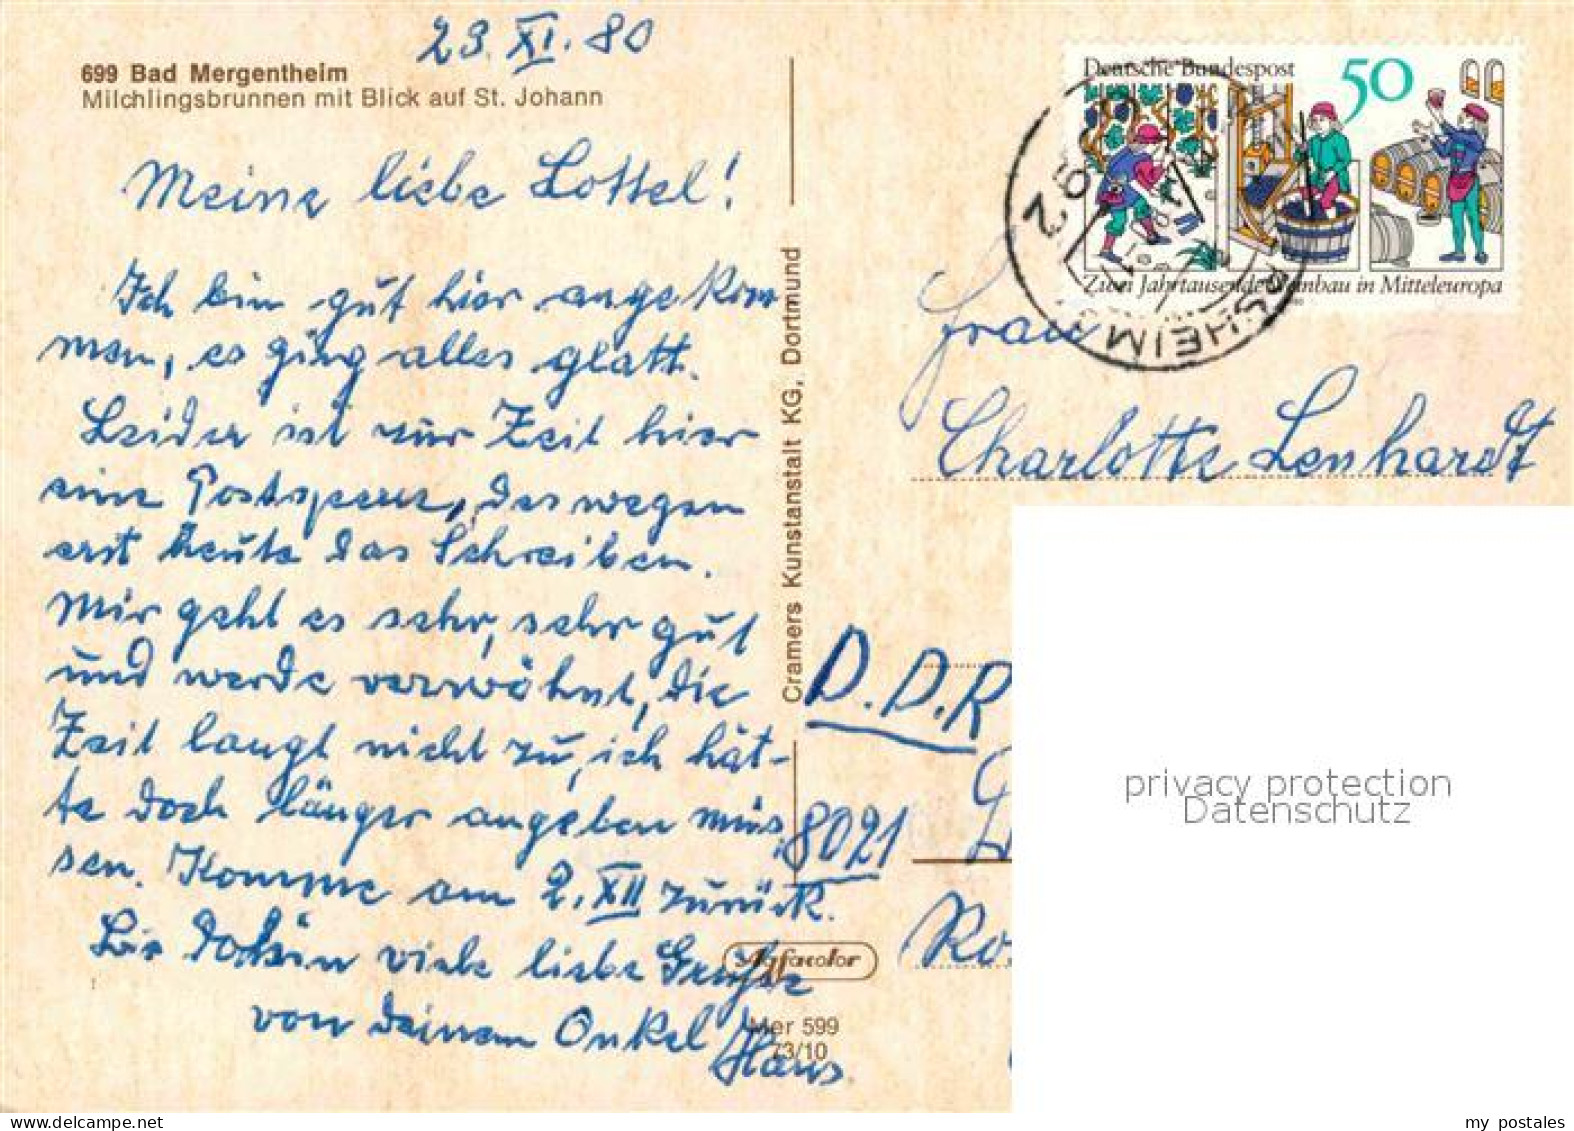 23. XI. 80
699 Bad Mergentheim
Milchlingsbrunnen mit Blick auf St. Johann
Meine liebe Lottel!
Ich bin gut hier angekom
men, es ging alles glatt.
Leider ist zur Zeit hier
eine Postsperre, deswegen
erst heute das Schreiben.
Mir geht es sehr, sehr gut
und werde verwöhnt, die
Zeit langt nicht zu, ich hät-
te doch länger angeben müs
sen. Komme am 2. XII zurück.
Bis dahin viele liebe Grüße
von deinem Onkel Hans
Cramers Kunstanstalt KG, Dortmund
Mer 599
73/10
Deutsche Bundespost
50
Zwei Jahrtausende Weinbau in Mitteleuropa
Frau
Charlotte Lenhardt
D.D.R
8021
Ro
privacy protection
Datenschutz
my postales